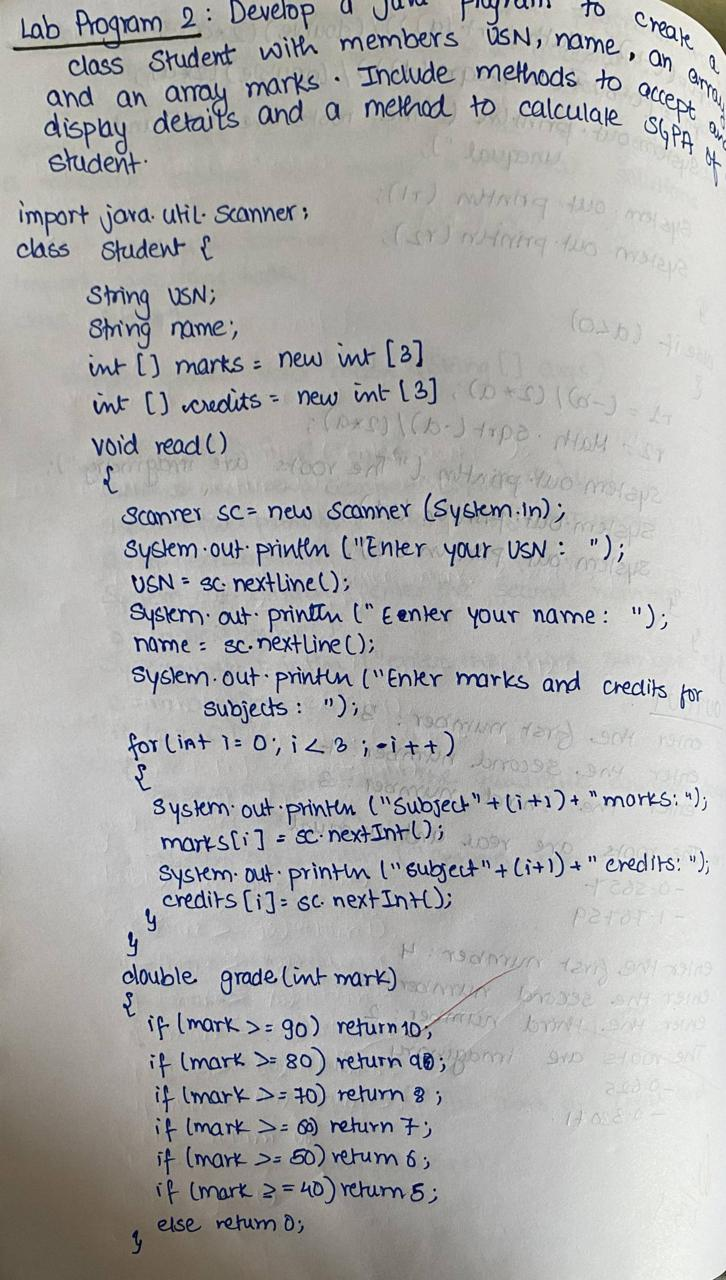 Lab Program 2: Develop a Java program to create a
class Student with members USN, name, an array
and an array marks. Include methods to accept and
display details and a method to calculate SGPA of
student.
import java.util.Scanner;
class Student {
String USN;
String name;
int [] marks = new int [3]
int [] credits = new int [3]
void read()
{
Scanner sc = new Scanner (System.in);
System.out.println ("Enter your USN : ");
USN = sc.nextLine();
System.out.println (" Eenter your name : ");
name = sc.nextLine();
System.out.println ("Enter marks and credits for
subjects : ");
for(int i = 0; i < 3 ; i++)
{
System.out.println ("Subject" + (i+1) + "marks: ");
marks[i] = sc.nextInt();
System.out.println ("subject" + (i+1) + " credits: ");
credits [i] = sc.nextInt();
}
}
double grade (int mark)
{
if (mark >= 90) return 10;
if (mark >= 80) return 9;
if (mark >= 70) return 8;
if (mark >= 60) return 7;
if (mark >= 50) return 6;
if (mark >= 40) return 5;
else return 0;
}